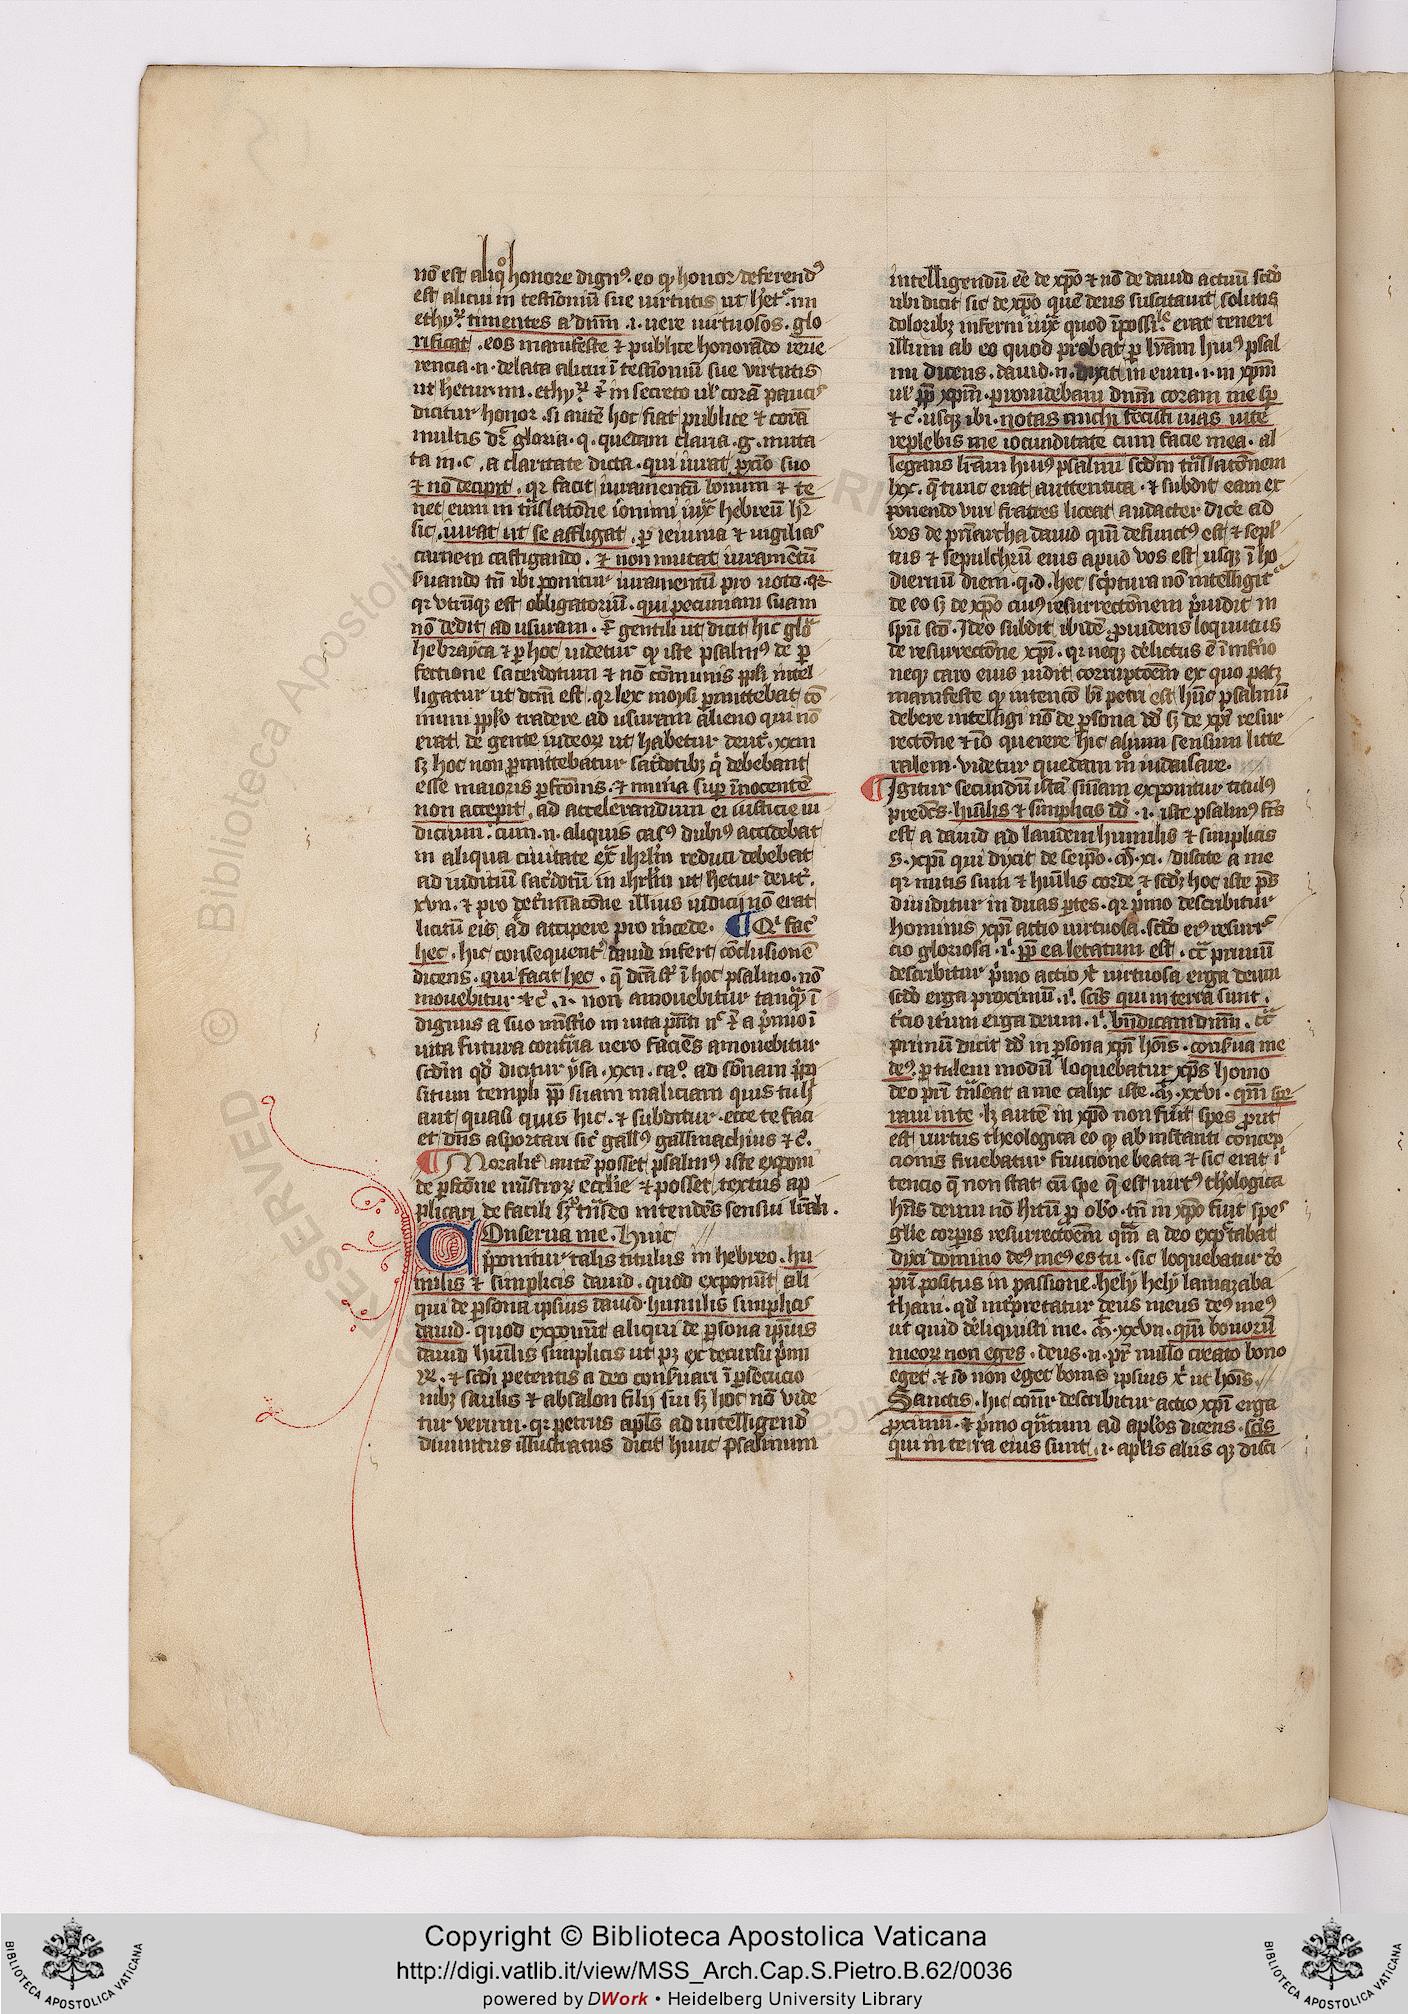 nō est aliqͦ honore dignꝰ. eo ꝙ honor deferendꝰ
est alicui in testīoniū sue uirtutis ut het᷑. iiii
ethyꝝ. timentes a͛ dn̄m .i. uere uirtuosos. glo
rificat .eos manifeste ⁊ publice honorādo reue
rencia .n. delata alicui ī testīoniū sue virtutis
ut hetur iiii. ethyꝝ. ⁊̄ in secreto ul̓ corā paucis
dicitur honor. si autē hoc fiat publice ⁊ corā
multis dr̄ gloria. q. quedam claria .g. muta
ta in .c. a claritate dicta. qui iurat ꝓxīo suo
⁊ nō decipit. qr facit iuramentū bonum ⁊ te
net eum in trāslatōne ieronimi iuxͣ hebreū hr̄
sic. iurat ut se affligat. ꝑ ieiunia ⁊ uigilias
carnem castigando. ⁊ non mutat iuramentū
suando tn̄ ibi ponitur iuramentū pro uoto. qr
qr vtrūqꝫ est obligatoriū. qui pecuniam suam
nō dedit ad usuram. ⁊̄ gentili ut dicit hic glōͣ
hebrayca ⁊ ꝑ hoc uidetur ꝙ iste psalmꝰ de ꝑ
fectione sacerdotum ⁊ nō cōmunis ppl̓i intel
ligatur ut dc̄m est. qr lex moysi ꝑmittebat cō
muni ppl̓o tradere ad usuram alieno qui nō
erat de gente iudeoꝝ ut habetur deut͛. xxiii
sꝫ hoc non ꝑmittebatur sac͛dotibꝫ qͥ debebant
esse maioris ꝑfc̄onis. ⁊ munera suꝑ īnocentē
non accepit. ad accelerandum ei iusticie iu
dicium. cum .n. aliquis casꝰ dubiꝰ accidebat
in aliqua ciuitate exͣ ihrl̄m reduci debebat
ad iudiciū sac͛dotū in ihrl̄m ut hetur deut͛.
xvii. ⁊ pro det͛minacōne illius iudicij nō erat
licitū eis aͥd accipere pro m͛cede. ¶ Qͥ fac̓
hec. hic consequent͛ dauid infert cōclusionē
dicens. qui facit hec. q̄ dc̄a sͭ ī hoc psalmo. nō
mouebitur ⁊ c̓. .i. non amouebitur tanqͣꝫ ī
dignus a suo mīst͛io in uita pn̄ti nͨ ⁊̄ a pͥmio ī
uita futura contͣria uero faciens amouebitur
scdm qd̓ dicitur ysa. xxii. ca̓. ad sobnam pͥpo
situm templi ꝓpt̄ suam maliciam quis tu hͥ
aut quasi quis hic. ⁊ subditur. ecce te faci
et dn̄s asportari sic̓ gallꝰ gallinachius ⁊ c̓.
¶ Moralit͛ autē posset psalmꝰ iste exponi
de ꝑfc̄one mīstroꝝ ecclie ⁊ posset textus ap
plicari de facili sꝫ trāseo intendēs sensui lr̄ali.
Conserua me. Huic
pͥponitur talis titulus in hebreo. hu
milis ⁊ simplicis dauid. quod exponūt ali
qui de ꝑsona ipsius dauid. humilis simplicis
dauid. quod exponūt aliqui de ꝑsona ipsius
dauid hūilis simplicis ut pꝫ ex decursu pͥmi
re. ⁊ scdi petentis a deo conseruari ī ꝑsecucio
nibꝫ saulis ⁊ absalon filij sui sꝫ hoc nō vide
tur verum. qr petrus apl̄s ad intelligendͫ
diuinitus illustratus dicit hunc psalmum
intelligendū ēē de xp̄o ⁊ nō de dauid actuū scdo
ubi dicit sic de xp̄o quē deus suscitauit solutis
doloribꝫ inferni iuxͣ quod īpossiͥle erat teneri
illum ab eo quod probat ꝑ lr̄am huiꝰ psal
mi dicens. dauid .n. dixit in eum .i. in xp̄m
ul̓ ꝓpt̄ xp̄m. prouidebam dn̄m coram me sp̄
⁊ c̓. usqꝫ ibi. notas michi fecisti uias uite
replebis me iocunditate cum facie mea. al
legans lr̄am huiꝰ psalmi scdm trāslatōnem
lxx. q̄ tunc erat auttentica. ⁊ subdit eam ex
ponendo viri fratres liceat audacter dice ad
vos de pͥarcha dauid qm̄ defunctꝰ est ⁊ sepl̓
tus ⁊ sepulchrū eius apud vos est usqꝫ ī ho
diernū diem. q.d. hec scͥptura nō intelligit͛
de eo sꝫ de xp̄o cuiꝰ resurrectōnem pͥuidit in
sp̄u scō. Ideo subdit ibidē ꝓuidens loquutus
de resurrectōne xp̄i. qr neqꝫ derelictus ē ī inf͛no
neqꝫ caro eius uidit corruptōēm ex quo patꝫ
manifeste ꝙ intencō bī petri est hūc psalmū
debere intelligi nō de ꝑsona dd̓ sꝫ de xp̄i resur
rectōne ⁊ iō querere hic alium sensum litte
ralem. videtur quedam mͦ iudaisare.
¶ Igitur secundū istā sn̄iam exponitur titulus
predcūs. hūilis ⁊ simplicis dd̓ .i. iste psalmꝰ fc̄s
est a dauid ad laudem humilis ⁊ simplicis
s. xp̄i qui dixit de seip̄o. mͭ. xi. discite a me
qr mitis sum ⁊ hūilis corde ⁊ scdꝫ hoc iste ps̄
diuiditur in duas ꝑtes. qr pͥmo describitur
hominis xp̄i actio virtuosa. scdo eiꝰ resurrͨ
cio gloriosa. iͥ. ꝓpt̄ ea letatum est. cͣ primū
describitur pͥmo actio xͭ uirtuosa erga deum
scdo erga proximū. iͥ. scīs qui in terra sunt.
t͛cio it͛um erga deum. iͥ. bn̄dicam dn̄m. cͣ
primū dicit dd̓ in ꝑsona xp̄i hoīs. conserua me
deꝰ. ꝑ talem modū loquebatur xp̄s homo
deo prī trāseat a me calix iste. mͭ. xxvi. qm̄ spe
raui in te. lꝫ autē in xp̄o non fuit spes prout
est uirtus theologica eo ꝙ ab instanti concep
cionis fruebatur fruicione beata ⁊ sic erat iͥ
tencio q̄ non stat cū spe q̄ est uirtꝰ theologica
hn̄s deum nō hitū ꝑ obo̓. tn̄ in xp̄o fuit spes
glīe corporis resurrectōēm qm̄ a deo expectabat
dixi domino deꝰ meꝰ es tu. sic loquebatur deo
prī positus in passione. hely hely lamazaba
thani. qd̓ int͛pretatur deus meus deꝰ meꝰ
ut quid dereliquisti me. mͭ. xxvii. qm̄ bonorū
meoꝝ non eges. deus .n. pr̄ nullo creato bono
eget. ⁊ iō non eget bonis ipsius xͥ ut hoīs.
Sanctis. hic conr̄ describitur actio xp̄i erga
ꝓximū. ⁊ pͥmo quātum ad apl̓os dicens. scīs
qui in terra eius sunt .i. aplīs alīis qꝫ disci
Copyright © Biblioteca Apostolica Vaticana
http://digi.vatlib.it/view/MSS_Arch.Cap.S.Pietro.B.62/0036
powered by DWork • Heidelberg University Library
BIBLIOTECA APOSTOLICA VATICANA
BIBLIOTECA APOSTOLICA VATICANA